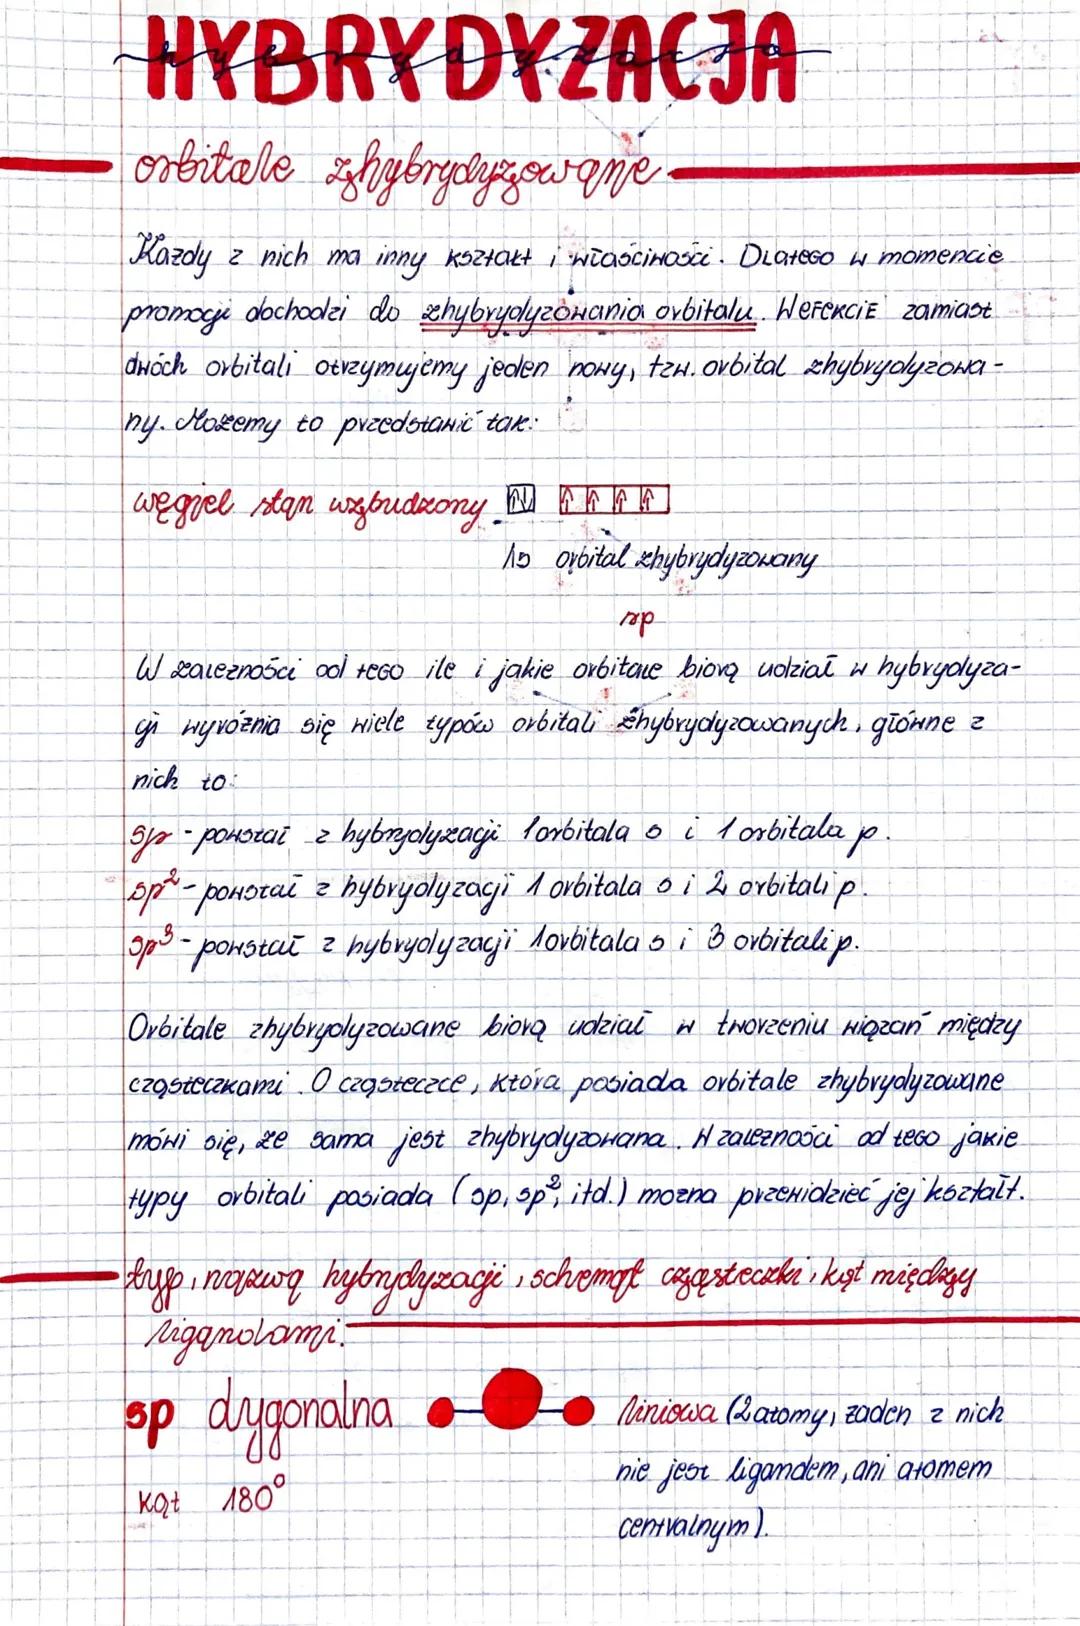 HYBRYDYZACJA
hybrydyzacja
orbitale zhybrydyzowane
Każdy z nich ma inny kształt i właściwości. Dlatego w momencie
promocji dochodzi do zhybrydyzowania orbitalu. W efekcie zamiast
dwóch orbitali otrzymujemy jeden nowy, tzw. orbital zhybrydyzowa-
ny. Możemy to przedstawić tak:
węgiel stan wzbudzony ↑↓ ↑ ↑ ↑ ↑
1s orbital zhybrydyzowany
sp
W zależności od tego ile i jakie orbitale biorą udział w hybrydyza-
cji wyróżnia się wiele typów orbitali zhybrydyzowanych, główne z
nich to:
sp - powstał z hybrydyzacji 1 orbitala s i 1 orbitala p.
sp² - powstał z hybrydyzacji 1 orbitala s i 2 orbitali p.
sp³ - powstał z hybrydyzacji 1 orbitala s i 3 orbitali p.
Orbitale zhybrydyzowane biorą udział w tworzeniu wiązań między
cząsteczkami. O cząsteczce, która posiada orbitale zhybrydyzowane
mówi się, że sama jest zhybrydyzowana. W zależności od tego jakie
typy orbitali posiada (sp, sp², itd.) można przewidzieć jej kształt.
typ, nazwa hybrydyzacji, schemat cząsteczki, kąt między
ligandami:
sp dygonalna liniowa (2 atomy, żaden z nich
nie jest ligandem, ani atomem
kąt 180°
centralnym).